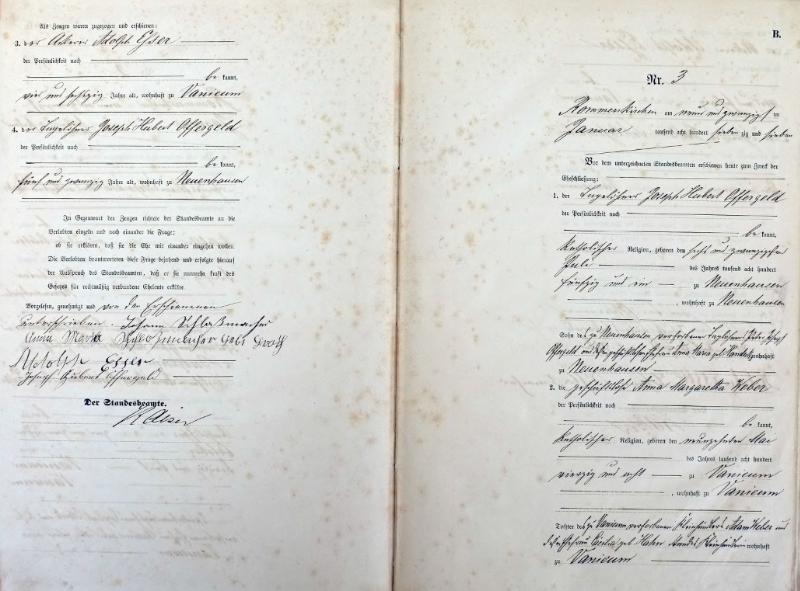 Als Zeugen waren zugezogen und erschienen:
3. der Ackerer Adolph Esser
der Persönlichkeit nach
be kannt,
vier und sechszig Jahre alt, wohnhaft zu Vanicum
4. der Tagelöhner Joseph Hubert Offergeld
der Persönlichkeit nach
be kannt,
fünf und zwanzig Jahre alt, wohnhaft zu Neuenhausen
In Gegenwart der Zeugen richtete der Standesbeamte an die
Verlobten einzeln und nach einander die Frage:
ob sie erklären, daß sie die Ehe mit einander eingehen wollen.
Die Verlobten beantworteten diese Frage bejahend und erfolgte hierauf
der Ausspruch des Standesbeamten, daß er sie nunmehr kraft des
Gesetzes für rechtmäßig verbundene Eheleute erkläre.
Vorgelesen, genehmigt und von den Erschienenen
unterschrieben. Johann Schloßmacher
Anna Maria Schloßmacher geb.
Adolph Esser
Joseph Hubert Offergeld
Der Standesbeamte.
B.
Nr. 3
Rommerskirchen am neun und zwanzigsten
Januar tausend acht hundert sieben zig und sieben
Vor dem unterzeichneten Standesbeamten erschienen heute zum Zweck der
Eheschließung:
1. der Tagelöhner Joseph Hubert Offergeld
der Persönlichkeit nach
be kannt,
katholischer Religion, geboren den sechs und zwanzigsten
Juli des Jahres tausend acht hundert
fünfzig und ein zu Neuenhausen
, wohnhaft zu Neuenhausen
Sohn des zu Neuenhausen verstorbenen Tagelöhners
Offergeld und dessen Anna Maria geb. wohnhaft
zu Neuenhausen
2. die geschäftslose Anna Margaretha Weber
der Persönlichkeit nach
be kannt,
katholischer Religion, geboren den neunzehnten Mai
des Jahres tausend acht hundert
vierzig und acht zu Vanicum
, wohnhaft zu Vanicum
Tochter des zu Vanicum verstorbenen Adam Weber und
geb. Hahn wohnhaft
zu Vanicum